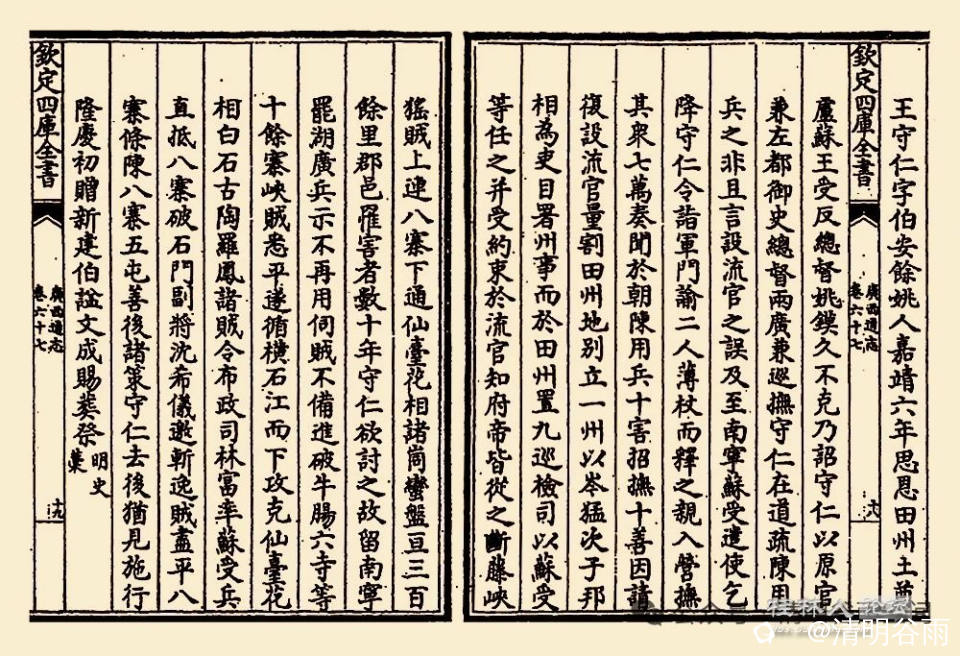 欽定四庫全書
廣西通志
卷六十七
十八
王守仁字伯安餘姚人嘉靖六年思恩田州土酋
盧蘇王受反總督姚鏌久不克乃詔守仁以原官
兼左都御史總督兩廣兼巡撫守仁在道疏陳用
兵之非且言設流官之誤及至南寧蘇受遣使乞
降守仁令詣軍門諭二人薄杖而釋之親入營撫
其衆七萬奏聞於朝陳用兵十害招撫十善因請
復設流官量割田州地别立一州以岑猛次子邦
相為吏目署州事而於田州置九巡檢司以蘇受
等任之并受約束於流官知府帝皆從之斷藤峽
猺賊上連八寨下通仙臺花相諸峝蠻盤亘三百
餘里郡邑罹害者數十年守仁欲討之故留南寧
罷湖廣兵示不再用伺賊不備進破牛腸六寺等
十餘寨峽賊悉平遂循橫石江而下攻克仙臺花
相白石古陶羅鳳諸賊令布政司林富率蘇受兵
直抵八寨破石門副將沈希儀邀斬逸賊盡平八
寨條陳八寨五屯善後諸策守仁去後猶見施行
隆慶初贈新建伯諡文成賜葬祭 明史 藁
欽定四庫全書
廣西通志
卷六十七
十九
桂林人論壇
@清明谷雨